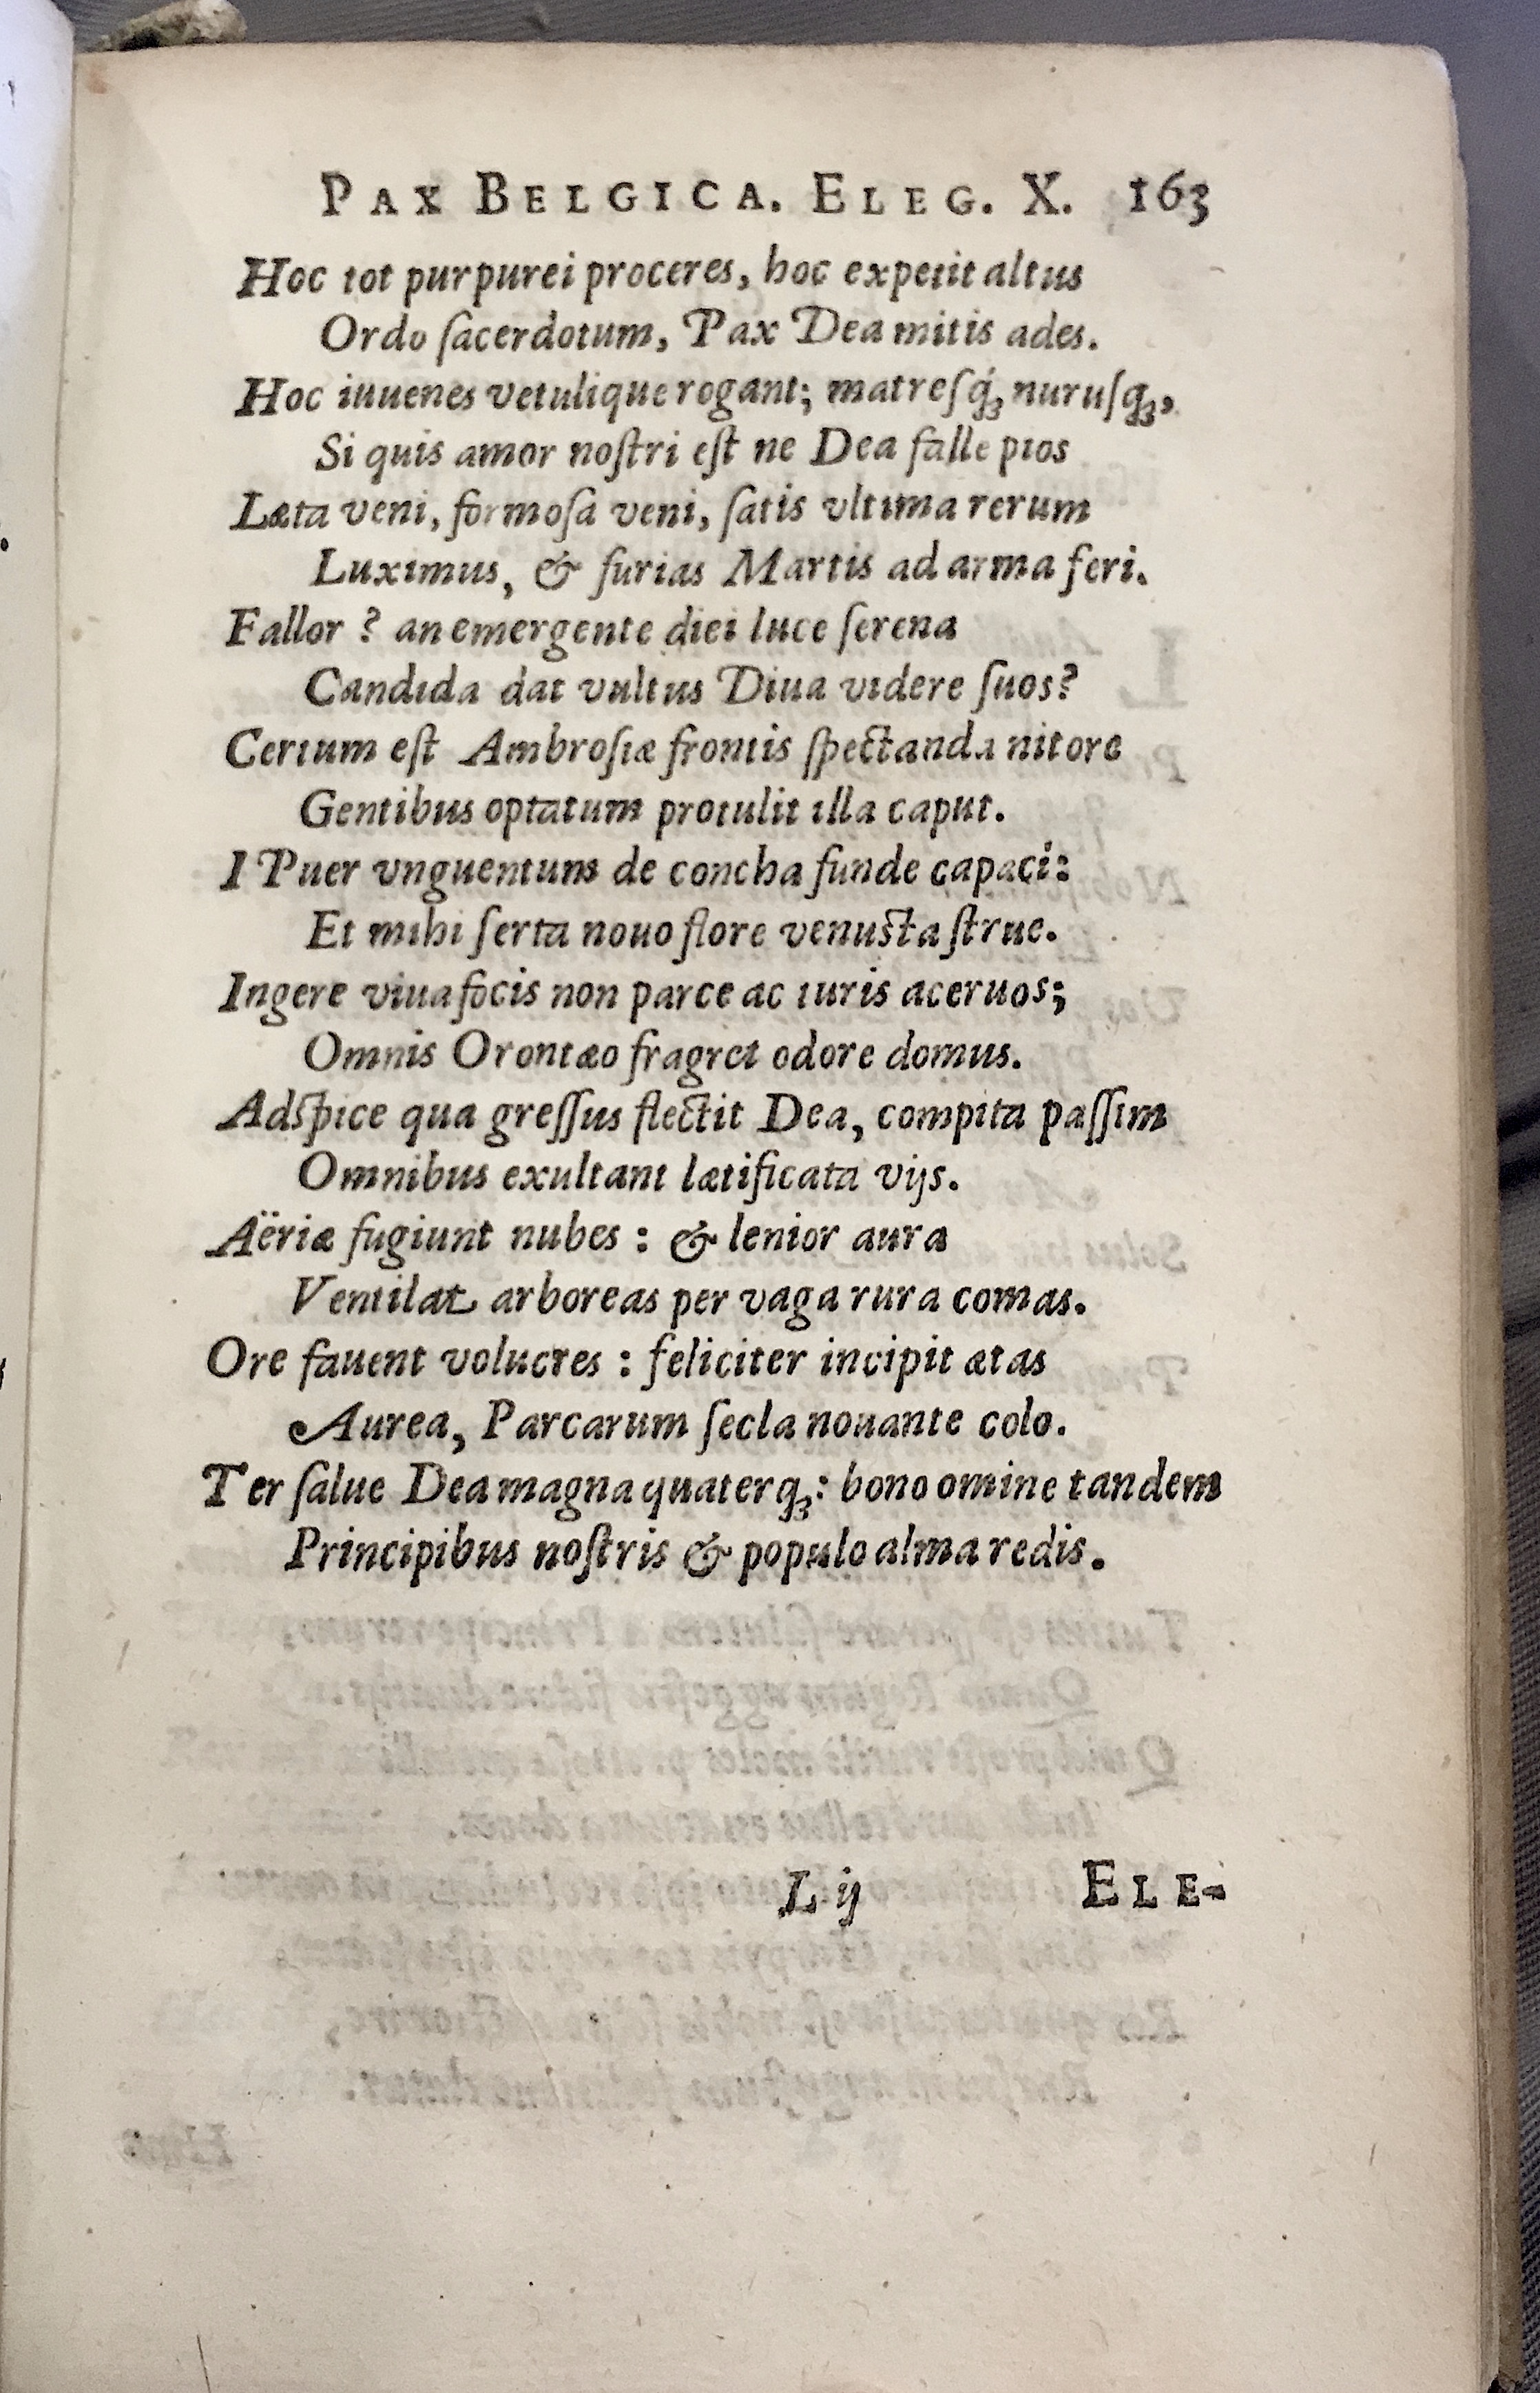 PAX BELGICA. ELEG. X. 163
Hoc tot purpurei proceres, hoc expetit altus
Ordo ſacerdotum, Pax Dea mitis ades.
Hoc iuuenes vetulique rogant; matreſq́ꝫ nuruſqꝫ,
Si quis amor noſtri eſt ne Dea falle pios
Læta veni, formoſa veni, ſatis vltima rerum
Luximus, & furias Martis ad arma feri.
Fallor ? an emergente diei luce ſerena
Candida dat vultus Diua videre ſuos?
Certum eſt Ambroſiæ frontis ſpectanda nitore
Gentibus optatum protulit illa caput.
I Puer vnguentum de concha funde capaci:
Et mihi ſerta nouo flore venuſta ſtrue.
Ingere viua focis non parce ac turis aceruos;
Omnis Orontæo fragret odore domus.
Adſpice qua greſſus flectit Dea, compita paſſim
Omnibus exultant lætificata vijs.
Aëriæ fugiunt nubes : & lenior aura
Ventilat arboreas per vaga rura comas.
Ore fauent volucres : feliciter incipit ætas
Aurea, Parcarum ſecla nouante colo.
Ter ſalue Dea magna quaterqꝫ: bono omine tandem
Principibus noſtris & populo alma redis.
L ij ELE-